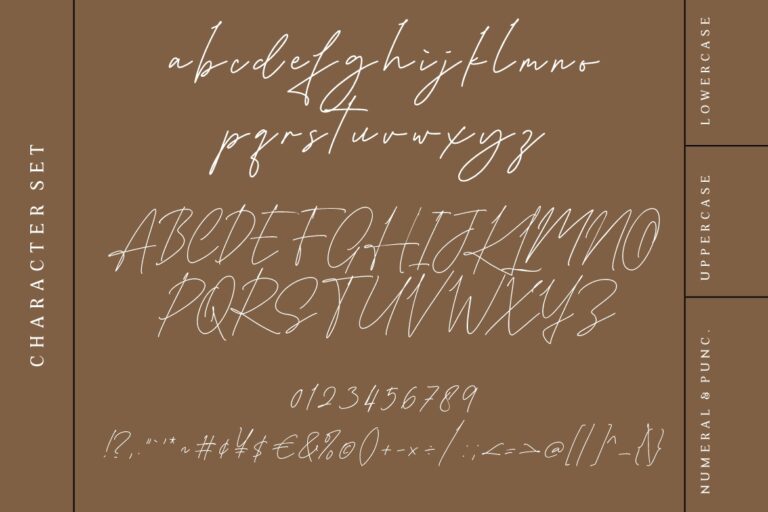 CHARACTER SET
abcdefghijklmno
pqrstuvwxyz
LOWERCASE
ABCDEFGHIJKLMNO
PQRSTUVWXYZ
UPPERCASE
0123456789
!?,."“‘'*~#¢¥$€&%©()+-×÷/:;<=>@[|]^_{\}
NUMERAL & PUNC.